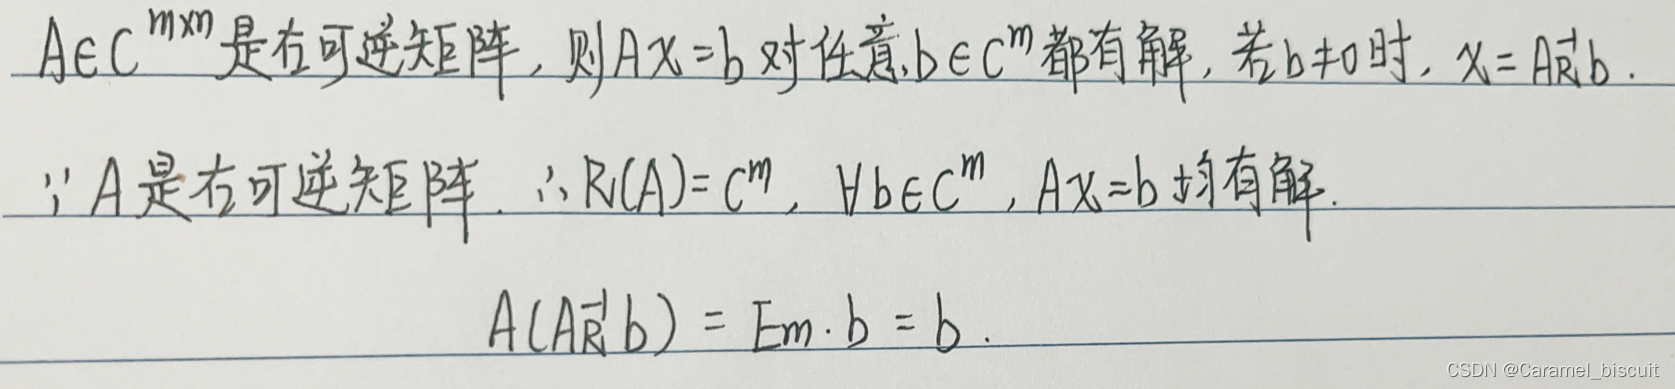 A∈C^{m×n}是右可逆矩阵, 则AX=b对任意b∈C^m都有解, 若b≠0时, x=A_R^{-1}b.
∵A是右可逆矩阵. ∴R(A)=C^m, ∀b∈C^m, AX=b均有解.
A(A_R^{-1}b) = Em·b = b.
CSDN @Caramel_biscuit